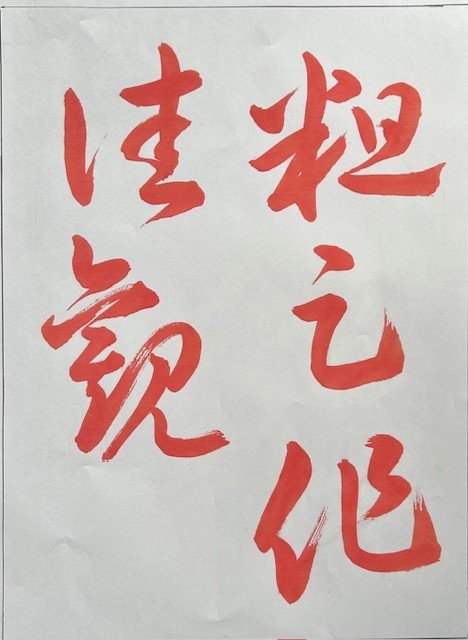 粗之作
佳觀